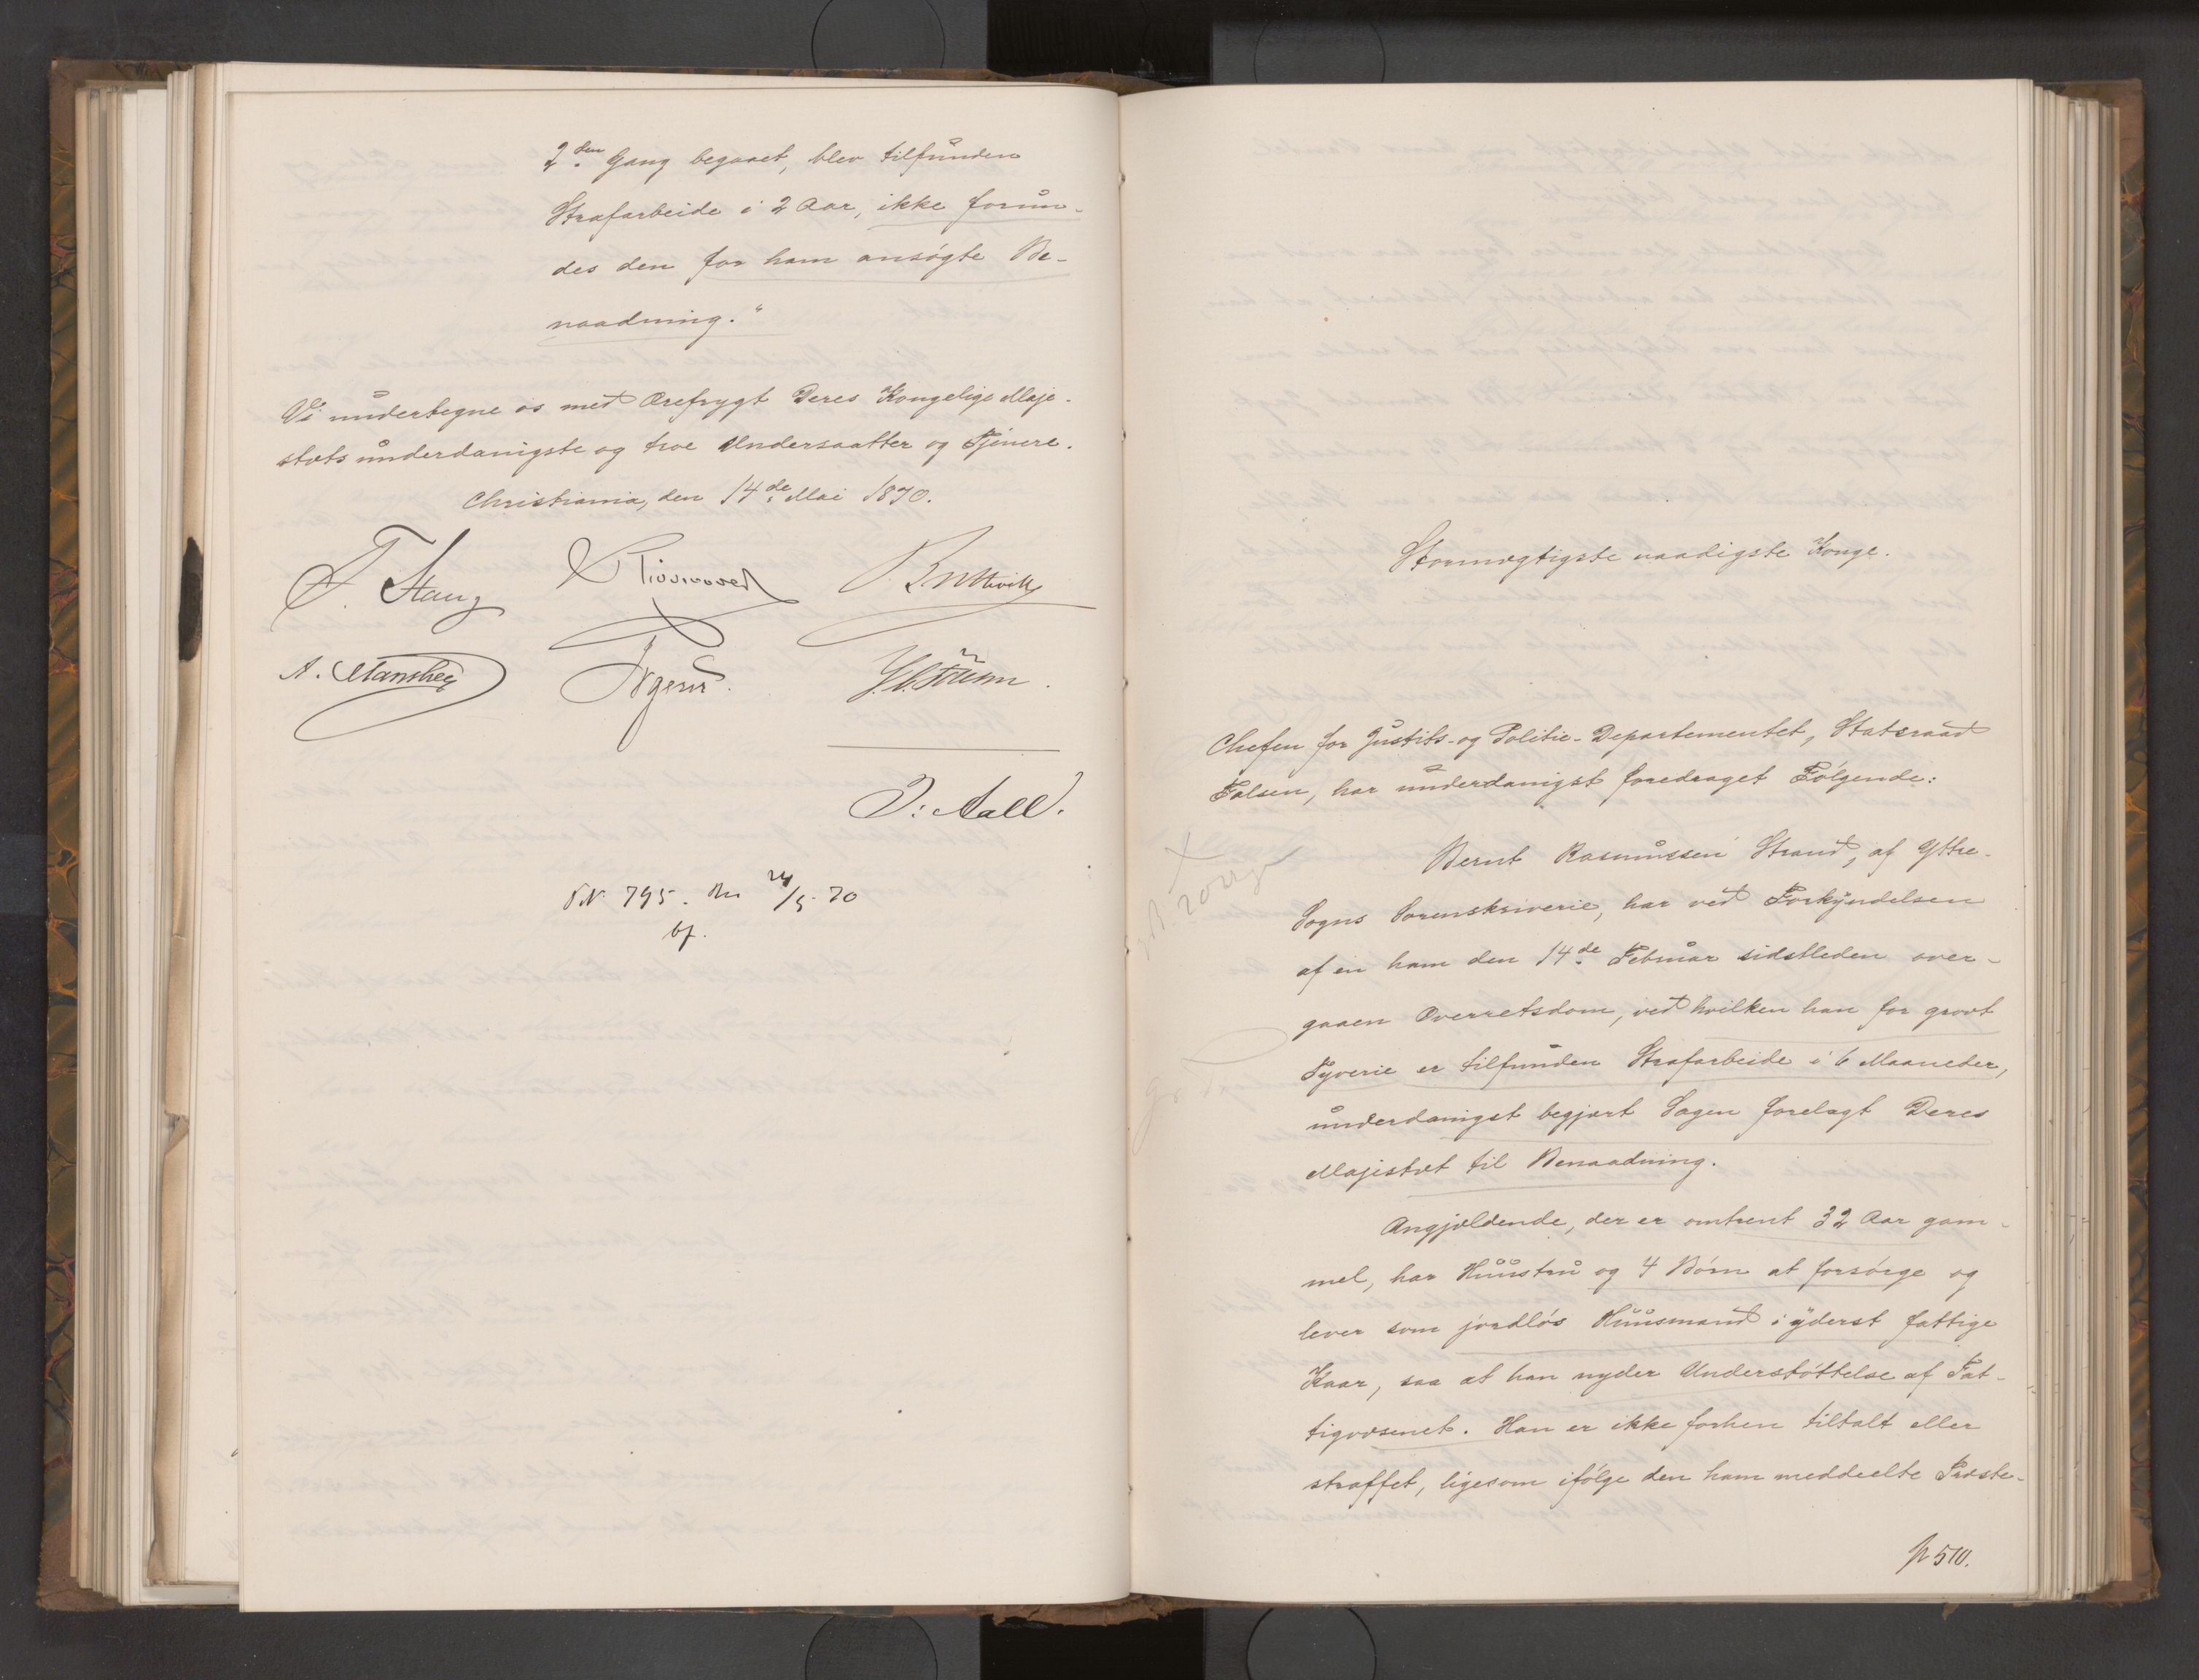 2den Gang begaaet, blev tilfunden
Strafarbeide i 2 Aar, ikke forun-
des den for ham ansøgte Be-
naadning."
Vi undertegne os med Ærefrygt Deres Kongelige Maje-
stæts underdanigste og troe Undersaatter og Tjenere.
Christiania, den 14de Mai 1870.
F. Stang
A. Manthey
J. Aall.
N. 795. 24/5 70
bf.
Stormægtigste naadigste Konge.
Chefen for Justits- og Politie-Departementet, Statsraad
Falsen, har underdanigst foredraget Følgende:
Bernt Rasmussen Strand, af Yttre-
Sogns Sorenskriverie, har ved Forkyndelsen
af en ham den 14de Februar sidstleden over-
gaaen Overretsdom, ved hvilken han for grovt
Tyverie er tilfunden Strafarbeide i 6 Maaneder,
underdanigst begjært Sagen forelagt Deres
Majestæt til Benaadning.
Angjældende, der er omtrent 32 Aar gam-
mel, har Huustru og 4 Børn at forsørge og
lever som jordløs Huusmand i yderst fattige
Kaar, saa at han nyder Understøttelse af Fat-
tigvæsenet. Han er ikke forhen tiltalt eller
straffet, ligesom ifølge den ham meddeelte Præste-
p 510.